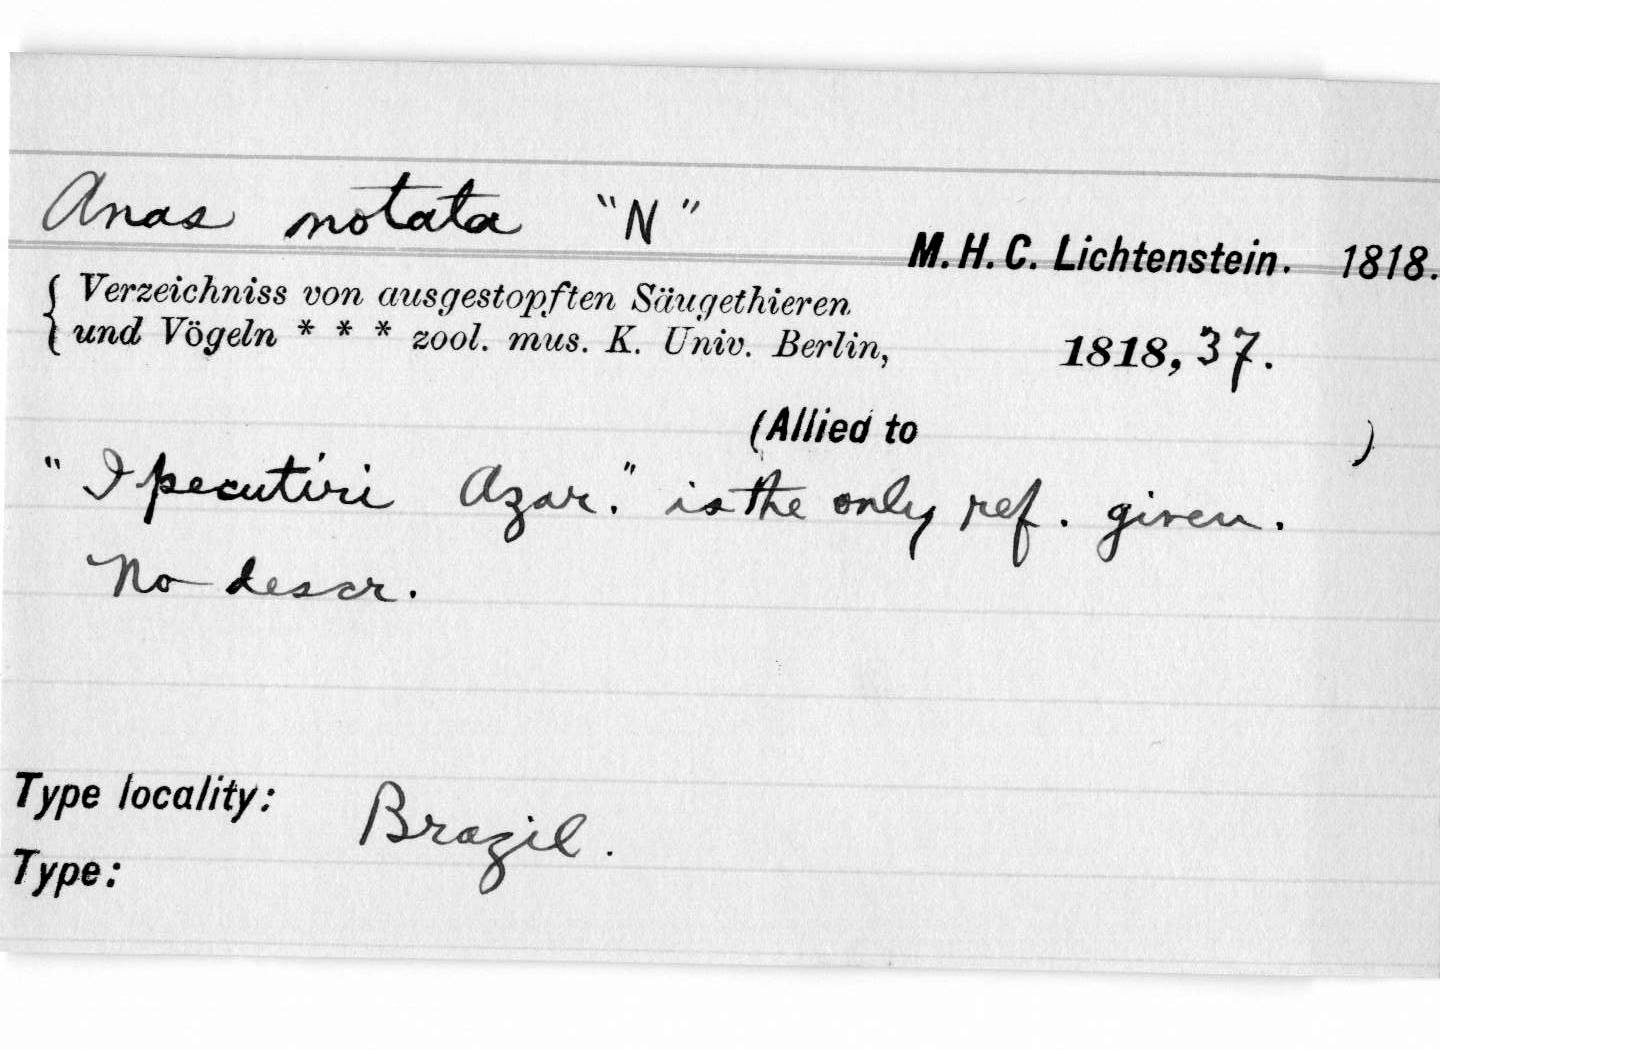 Anas notata "N"
M. H. C. Lichtenstein. 1818.
{ Verzeichniss von ausgestopften Säugethieren
{ und Vögeln * * * zool. mus. K. Univ. Berlin, 1818, 37.
(Allied to )
"Ipecutiri Azar." is the only ref. given.
No descr.
Type locality: Brazil.
Type: